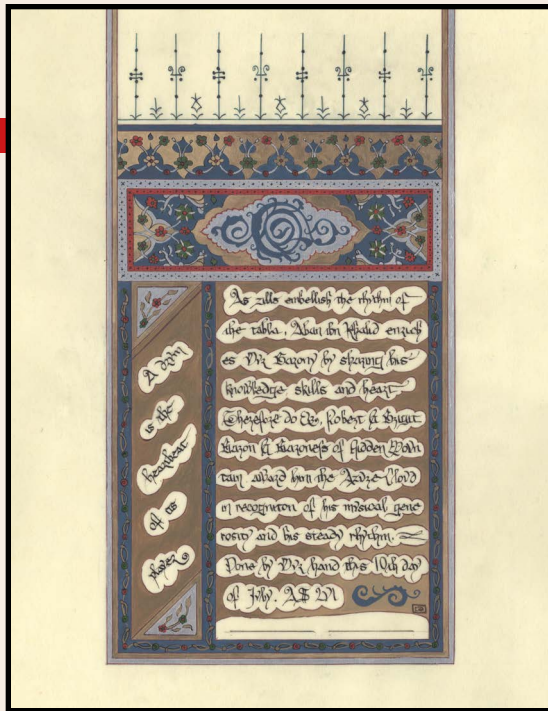 A drum
is the
heartbeat
of its
player
As zills embellish the rhythm of
the tabla, Aban ibn Khalid enrich
es Our Barony by sharing his
knowledge skills and heart
Therefore do We, Robert & Brigit
Baron & Baroness of Hidden Moun
tain award him the Azure Cloud
in recognition of his musical gene
rosity and his steady rhythm.
Done by Our hand this 10th day
of July. AS